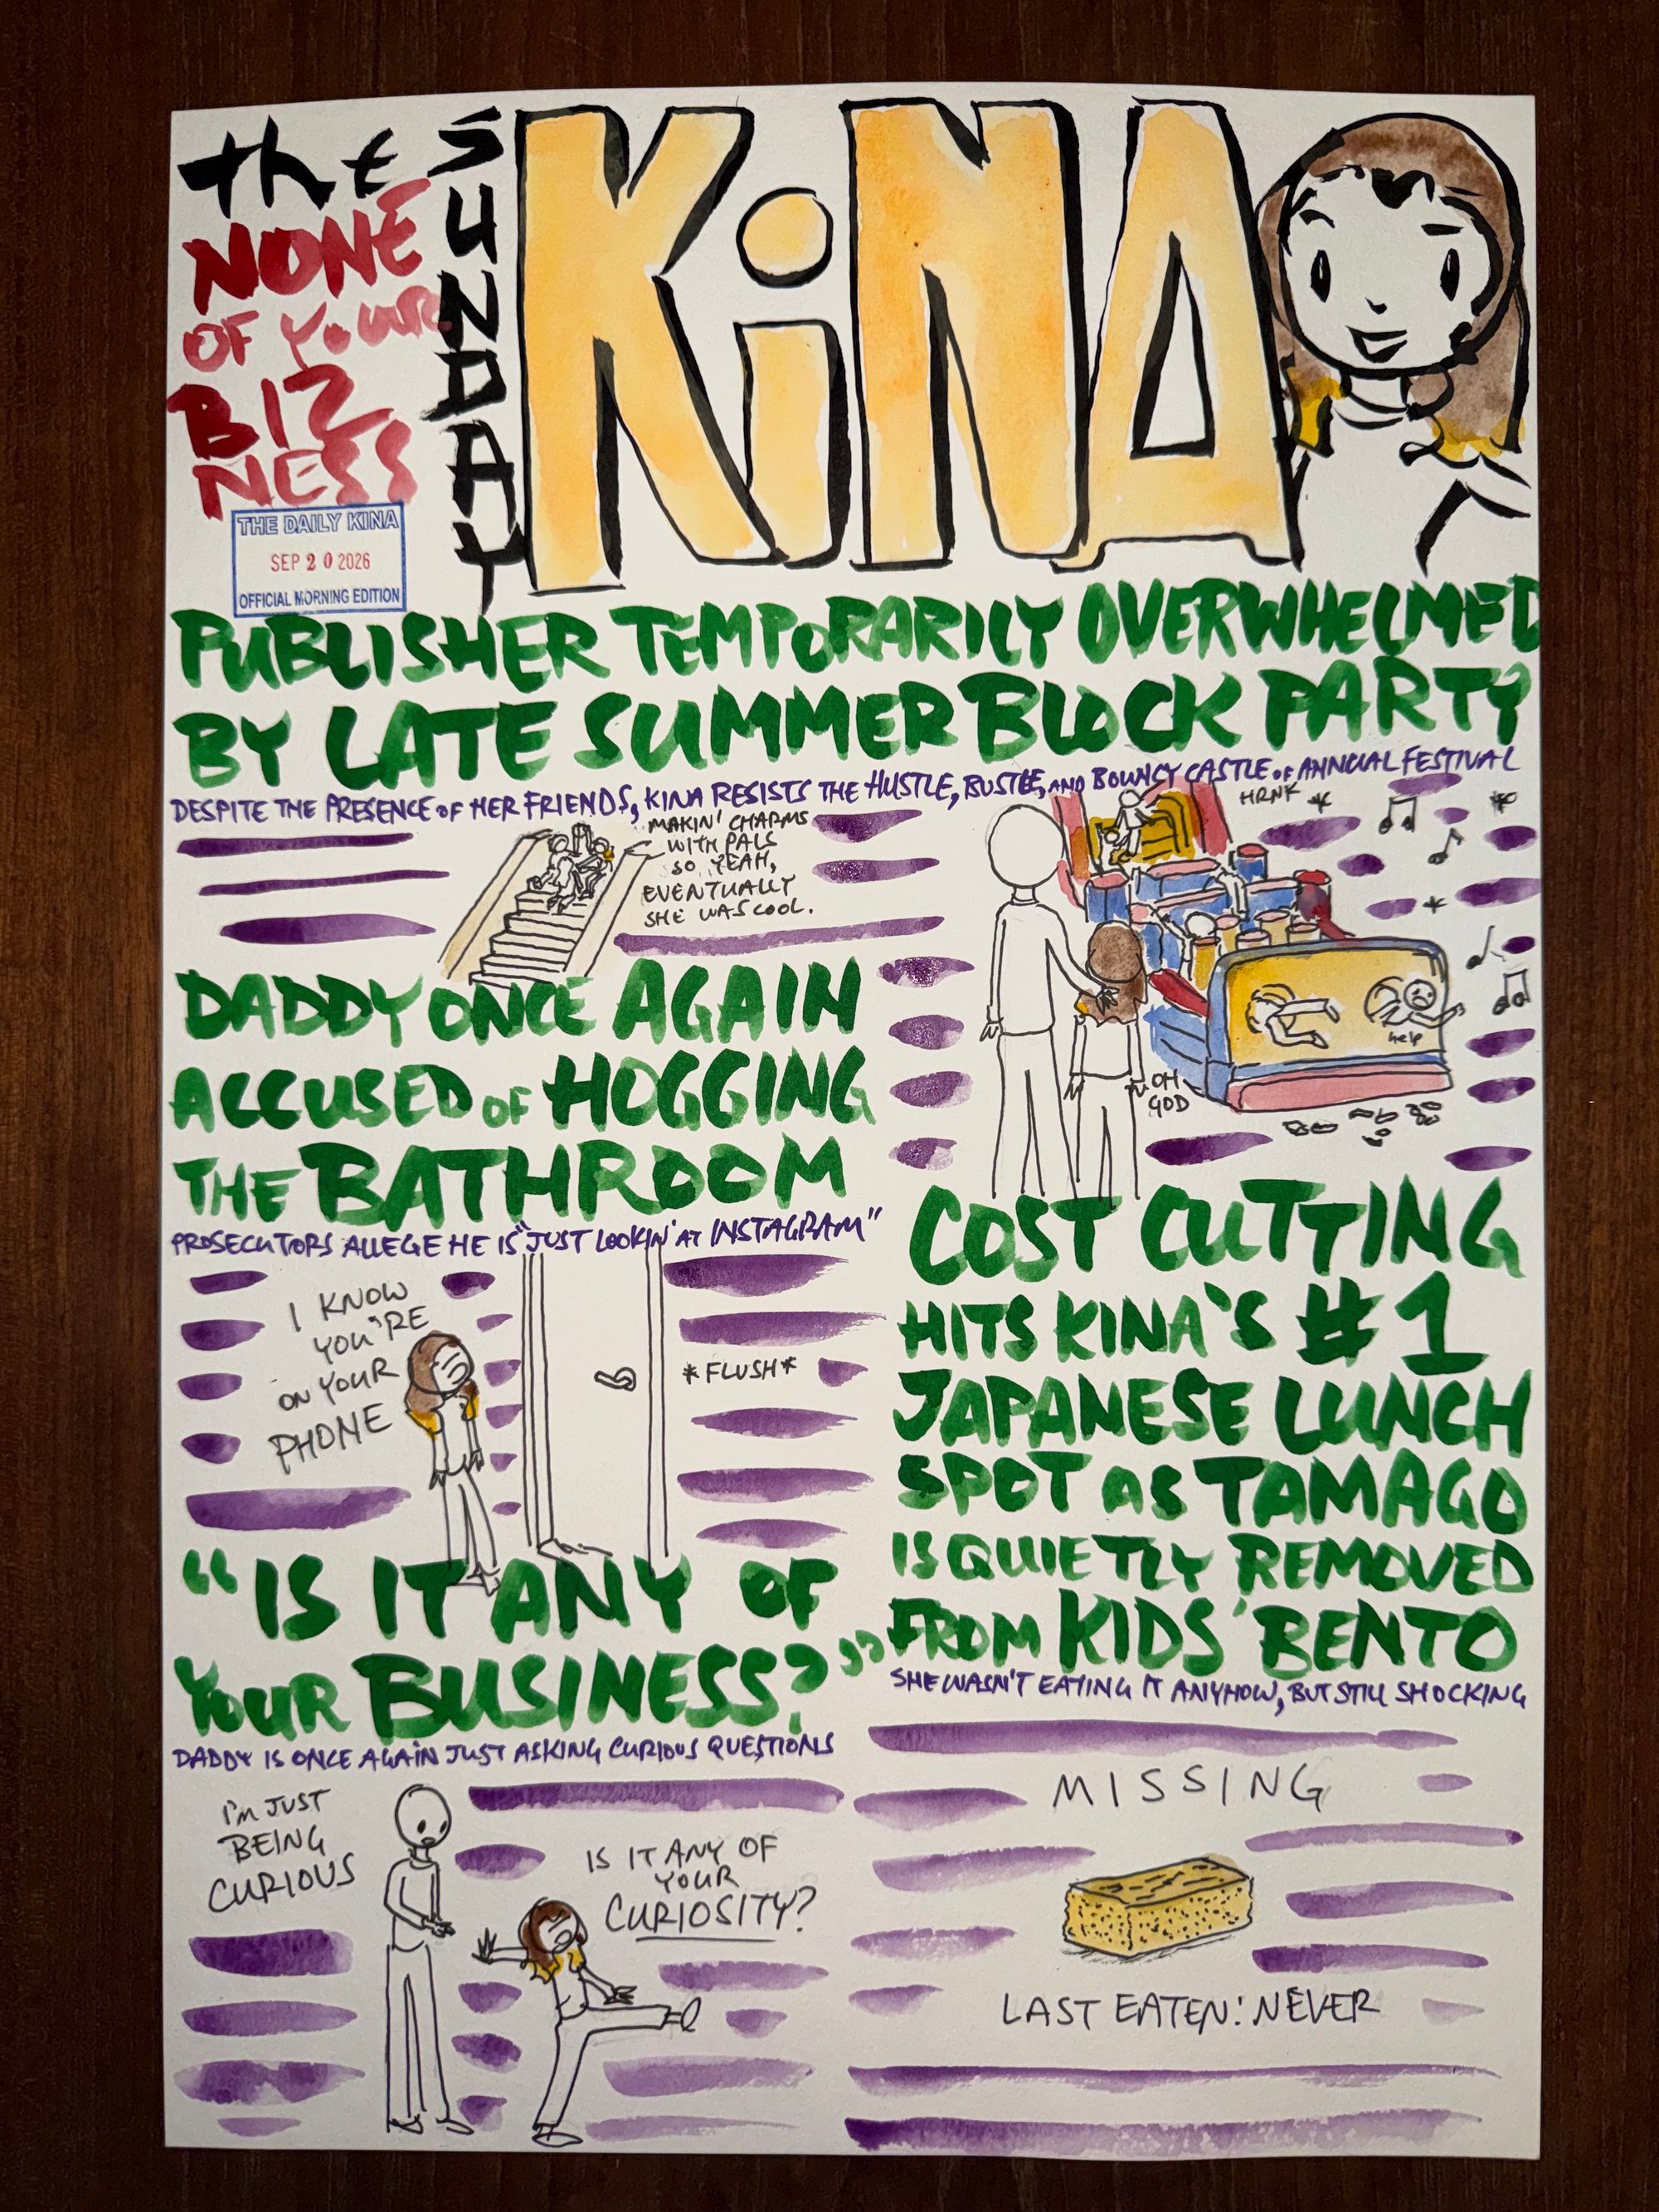 the
NONE
OF YOUR
BIZ
NESS
SUNDAY
KiNA
THE DAILY KINA
SEP 20 2026
OFFICIAL MORNING EDITION
PUBLISHER TEMPORARILY OVERWHELMED
BY LATE SUMMER BLOCK PARTY
DESPITE THE PRESENCE OF HER FRIENDS, KINA RESISTS THE HUSTLE, BUSTLE, AND BOUNCY CASTLE OF ANNUAL FESTIVAL
MAKIN' CHARMS
WITH PALS
SO YEAH,
EVENTUALLY
SHE WAS COOL.
HRNK
help
OH
GOD
DADDY ONCE AGAIN
ACCUSED OF HOGGING
THE BATHROOM
PROSECUTORS ALLEGE HE IS "JUST LOOKIN' AT INSTAGRAM"
I KNOW
YOU'RE
ON YOUR
PHONE
*FLUSH*
"IS IT ANY OF
YOUR BUSINESS?"
DADDY IS ONCE AGAIN JUST ASKING CURIOUS QUESTIONS
I'M JUST
BEING
CURIOUS
IS IT ANY OF
YOUR
CURIOSITY?
COST CUTTING
HITS KINA'S #1
JAPANESE LUNCH
SPOT AS TAMAGO
IS QUIETLY REMOVED
FROM KIDS' BENTO
SHE WASN'T EATING IT ANYHOW, BUT STILL SHOCKING
MISSING
LAST EATEN: NEVER